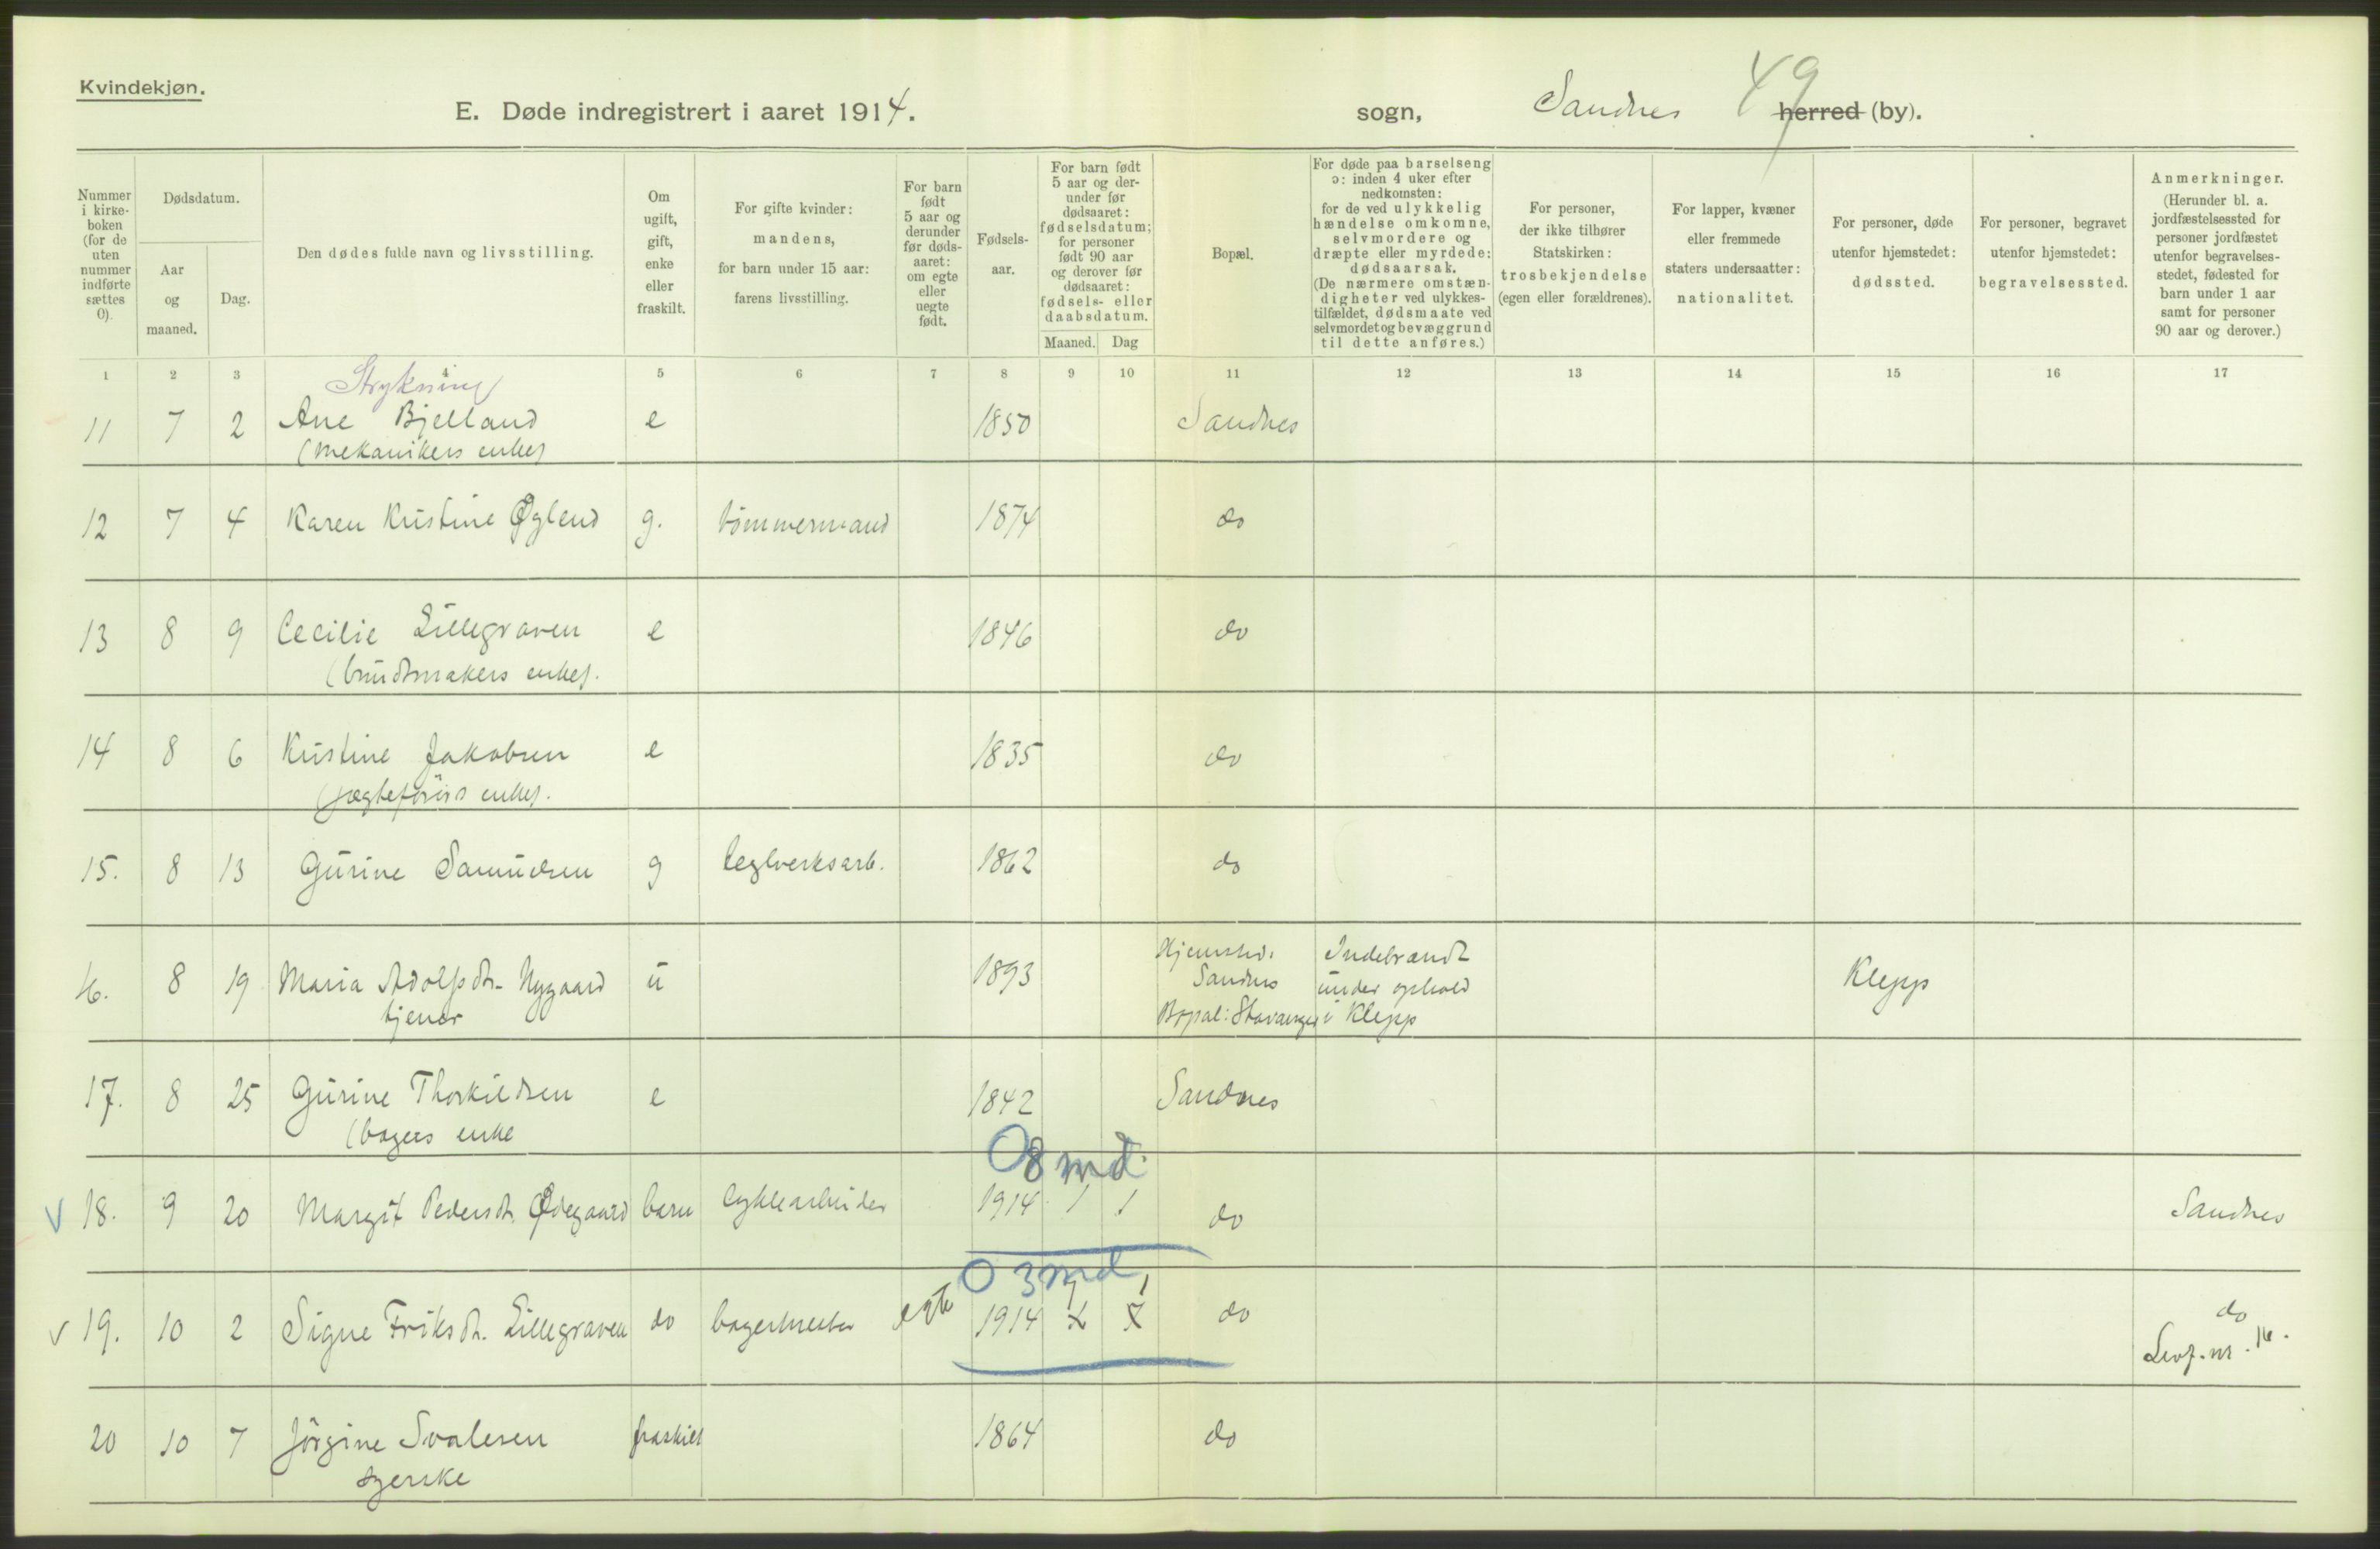 Kvindekjøn.
E. Døde indregistrert i aaret 1914. sogn, Sandnes 49 herred (by).
Nummer i kirke-boken (for de uten nummer indførte sættes 0).
Dødsdatum.
Aar og maaned.
Dag.
Den dødes fulde navn og livsstilling.
Om ugift, gift, enke eller fraskilt.
For gifte kvinder: mandens, for barn under 15 aar: farens livsstilling.
For barn født 5 aar og derunder før døds-aaret: om egte eller uegte født.
Fødsels-aar.
For barn født 5 aar og der-under før dødsaaret: fødselsdatum; for personer født 90 aar og derover før dødsaaret: fødsels- eller daabsdatum.
Maaned. Dag
Bopæl.
For døde paa barselseng ɔ: inden 4 uker efter nedkomsten: for de ved ulykkelig hændelse omkomne, selvmordere og dræpte eller myrdede: dødsaarsak. (De nærmere omstæn-digheter ved ulykkes-tilfældet, dødsmaate ved selvmordet og bevæggrund til dette anføres.)
For personer, der ikke tilhører Statskirken: trosbekjendelse (egen eller forældrenes).
For lapper, kvæner eller fremmede staters undersaatter: nationalitet.
For personer, døde utenfor hjemstedet: dødssted.
For personer, begravet utenfor hjemstedet: begravelsessted.
Anmerkninger. (Herunder bl. a. jordfæstelsessted for personer jordfæstet utenfor begravelses-stedet, fødested for barn under 1 aar samt for personer 90 aar og derover.)
1 2 3 4 5 6 7 8 9 10 11 12 13 14 15 16 17
Strykning
11 7 2 Ane Bjelland e 1850 Sandnes
(mekanikers enke)
12 7 4 Karen Kristine Øglend g. tømmermand 1874 do
13 8 9 Cecilie Lillegraven e 1846 do
(buntmakers enke).
14 8 6 Kristine Jakobsen e 1835 do
(jægteførers enke).
15. 8 13 Gurine Samuelsen g teglverksarb. 1862 do
16. 8 19 Maria Adolfsdtr. Nygaard u 1893 Hjemsted: Sandnes Indebrændt under ophold Klepp
tjener Bopæl: Stavanger i Klepp
17. 8 25 Gurine Thorkildsen e 1842 Sandnes
(bagers enke
0 8 md.
18. 9 20 Margit Pedersdtr. Ødegaard barn cyklearbeider 1914 1 1 do Sandnes
0 3 md
19. 10 2 Signe Eriksdtr. Lillegraven do bagermester egte 1914 do do
Levf. nr. 16.
20 10 7 Jørgine Svalesen fraskilt 1864 do
syerske